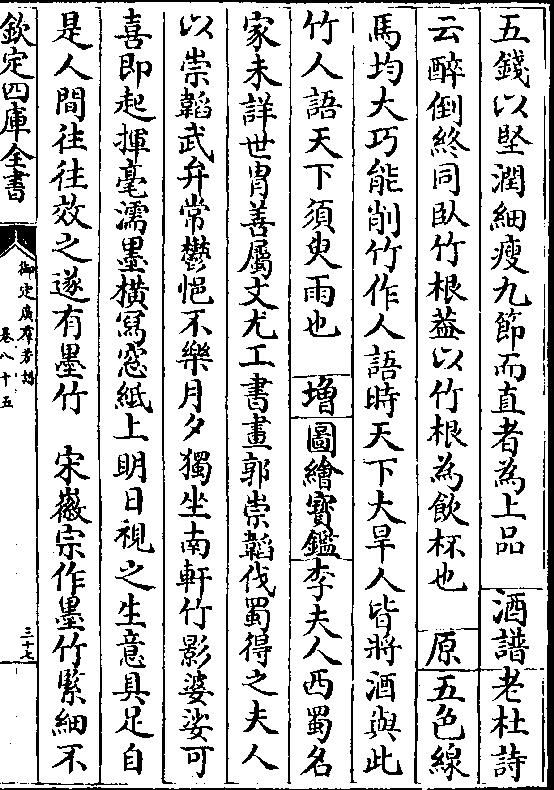 五錢以堅潤細瘦九節而直者為上品　酒譜老杜詩
云醉倒終同臥竹根葢以竹根為飲杯也　原五色線
馬均大巧能削竹作人語時天下大旱人皆將酒與此
竹人語天下須臾雨也　增圖繪寳鑑李夫人西蜀名
家未詳世胄善屬文尤工書畫郭崇韜伐蜀得之夫人
以崇韜武弁常鬱悒不樂月夕獨坐南軒竹影婆娑可
喜即起揮毫濡墨橫寫窓紙上明日視之生意具足自
是人間往往效之遂有墨竹　宋徽宗作墨竹緊細不
欽定四庫全書
御定廣羣芳譜
卷八十五
三十七